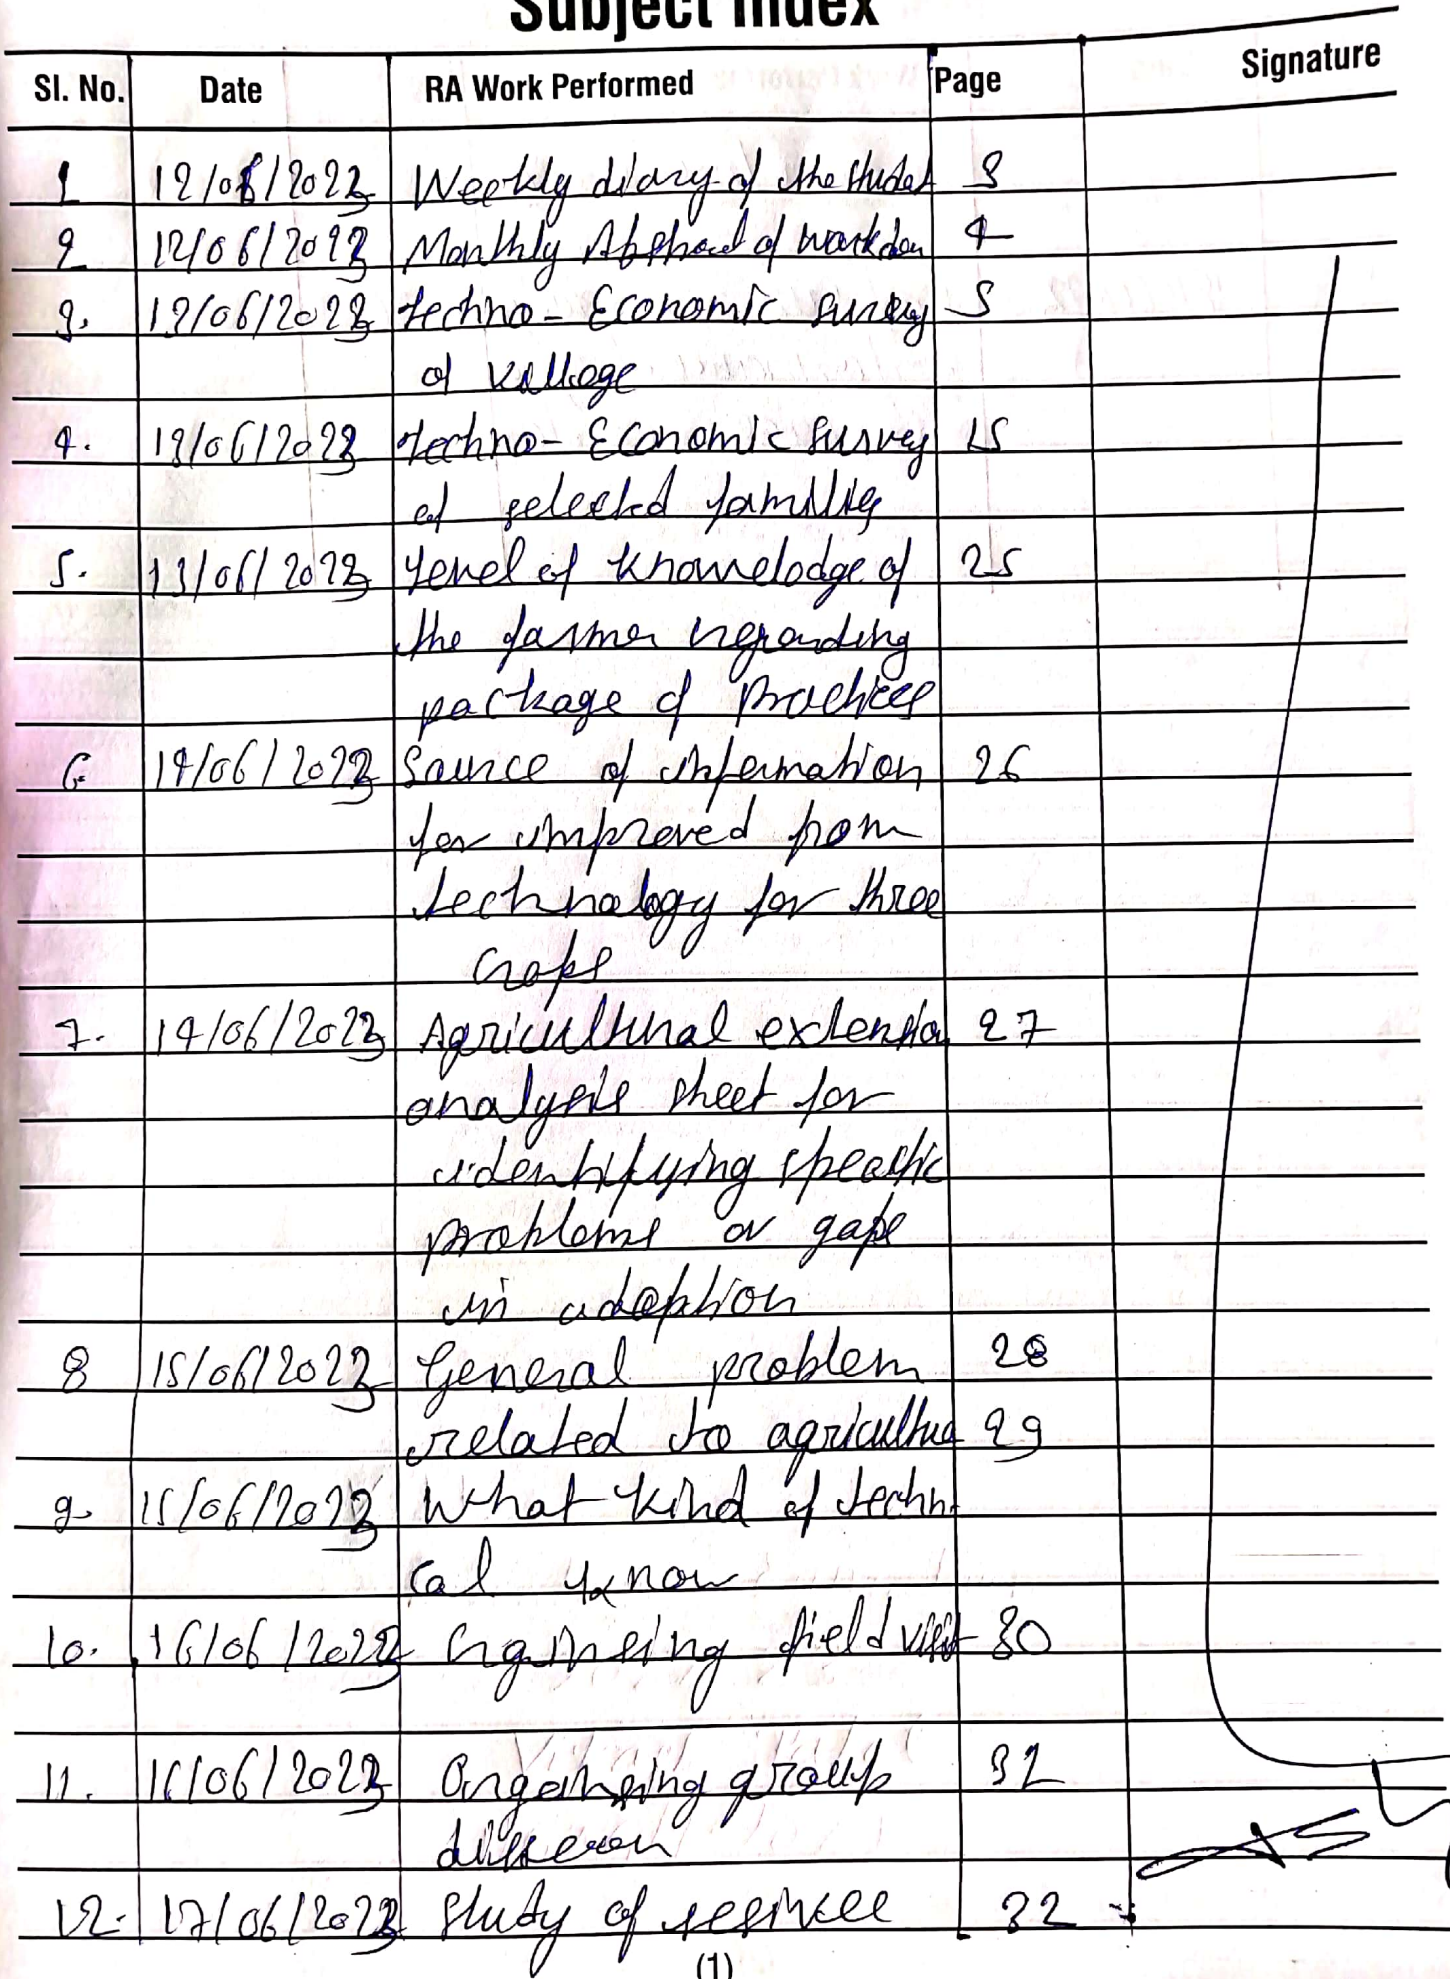 Subject Index
Sl. No. Date RA Work Performed Page Signature
1 12/06/2023 Weekly diary of the studet 3
2 12/06/2023 Monthly of work don 4
3. 12/06/2023 techno - Economic survey 5
of village
4. 13/06/2023 techno - Economic survey 15
of selected families
5. 13/06/2023 level of knowelodge of 25
the farmer regarding
package of practices
6. 14/06/2023 Source of information 26
for improved from
technology for three
crops
7. 14/06/2023 Agricultural extension 27
analysis sheet for
identifying specific
problems or gaps
in adoption
8 15/06/2023 General problem 28
related to agriculture 29
9. 15/06/2023 What kind of techni
cal know
10. 16/06/2023 field visit 30
11. 16/06/2023 Organising group 31
12. 17/06/2023 Study of 32
(1)